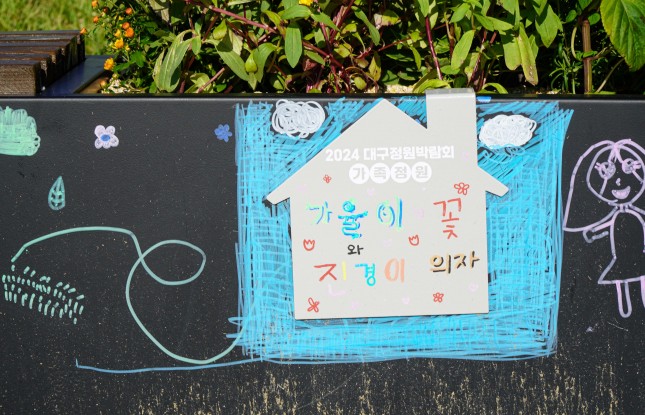 2024 대구정원박람회
가족정원
가을이 꽃
와
진경이 의자